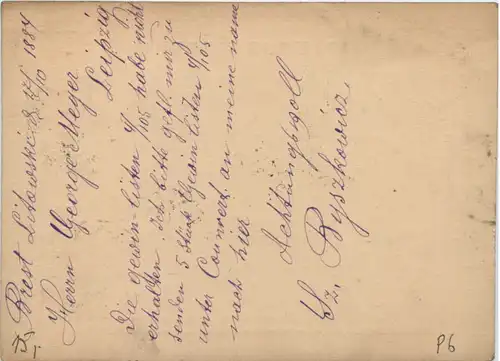 Brest Litowski d. 17/10 1884
Herrn George Meyer
Leipzig
Die gewin-listen 1/105 habe nicht
erhalten. Ich bitte gefl. mir zu
senden 5 Stück Gewin listen 1/105
unter Couwert an meine name
nach hier
Achtungsvoll
Sz. Ryszkowicz
P6